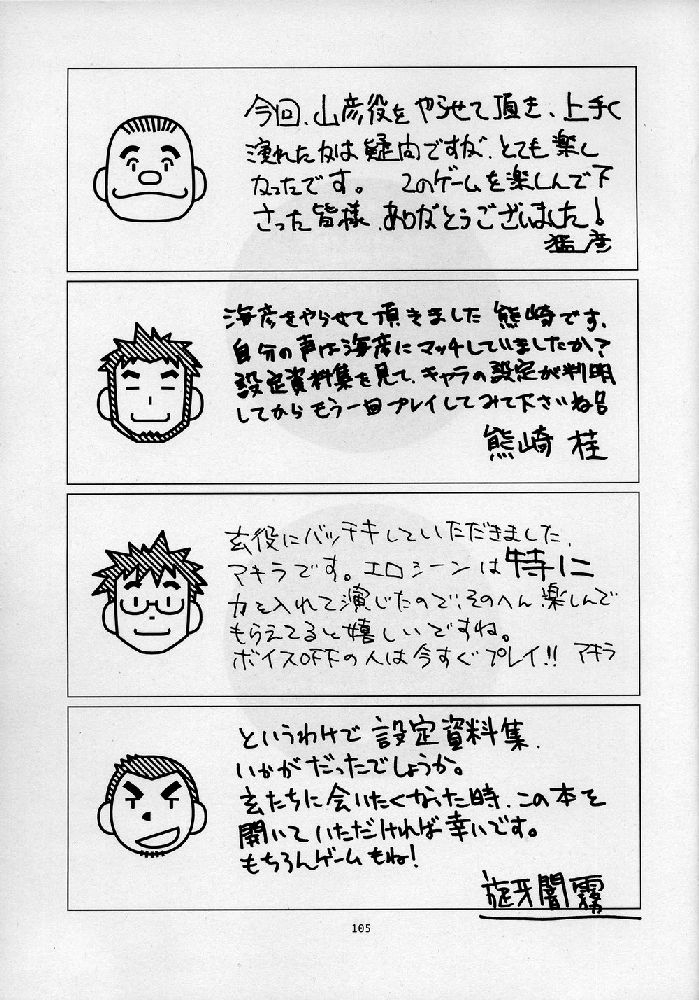 今回、山彦役をやらせて頂き、上手く
演れたかは疑問ですが、とても楽し
かったです。このゲームを楽しんで下
さった皆様、ありがとうございました!
海彦をやらせて頂きました熊崎です。
自分の声は海彦にマッチしていましたか?
設定資料集を見て、キャラの設定が判明
してからもう一回プレイしてみて下さいね
熊崎 桂
玄役にバッテキしていただきました、
マキラです。エロシーンは特に
力を入れて演じたので、そのへん楽しんで
もらえてると嬉しいですね。
ボイスOFFの人は今すぐプレイ!! マキラ
というわけで設定資料集、
いかがだったでしょうか。
玄たちに会いたくなった時、この本を
開いていただければ幸いです。
もちろんゲームもね!
旋牙闇霧
105